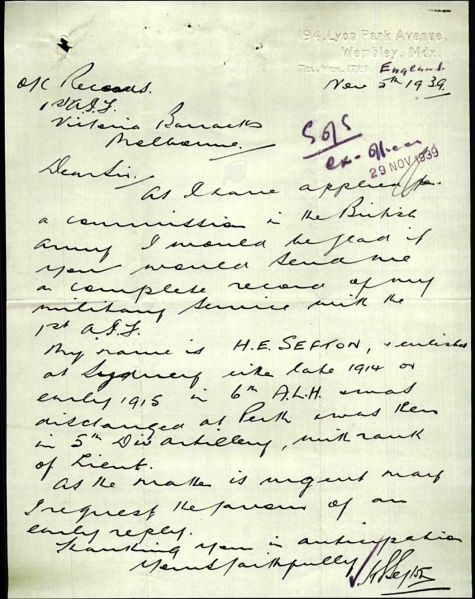 194, Lyon Park Avenue,
Wembley, Mdx.
England.
Nov 5th 1939.
O/C Records.
1st A.I.F.
Victoria Barracks
Melbourne.
SofS
ex-officer
29 NOV 1939
Dear Sir,
As I have applied for
a commission in the British
Army I would be glad if
you would send me
a complete record of my
military service with the
1st A.I.F.
My name is H.E. SEFTON, & enlisted
at Sydney either late 1914 or
early 1915 in 6th A.L.H. & was
discharged at Perth & was then
in 5th Div Artillery, with rank
of Lieut.
As the matter is urgent may
I request the favour of an
early reply.
Thanking you in anticipation
Yours faithfully
H E Sefton